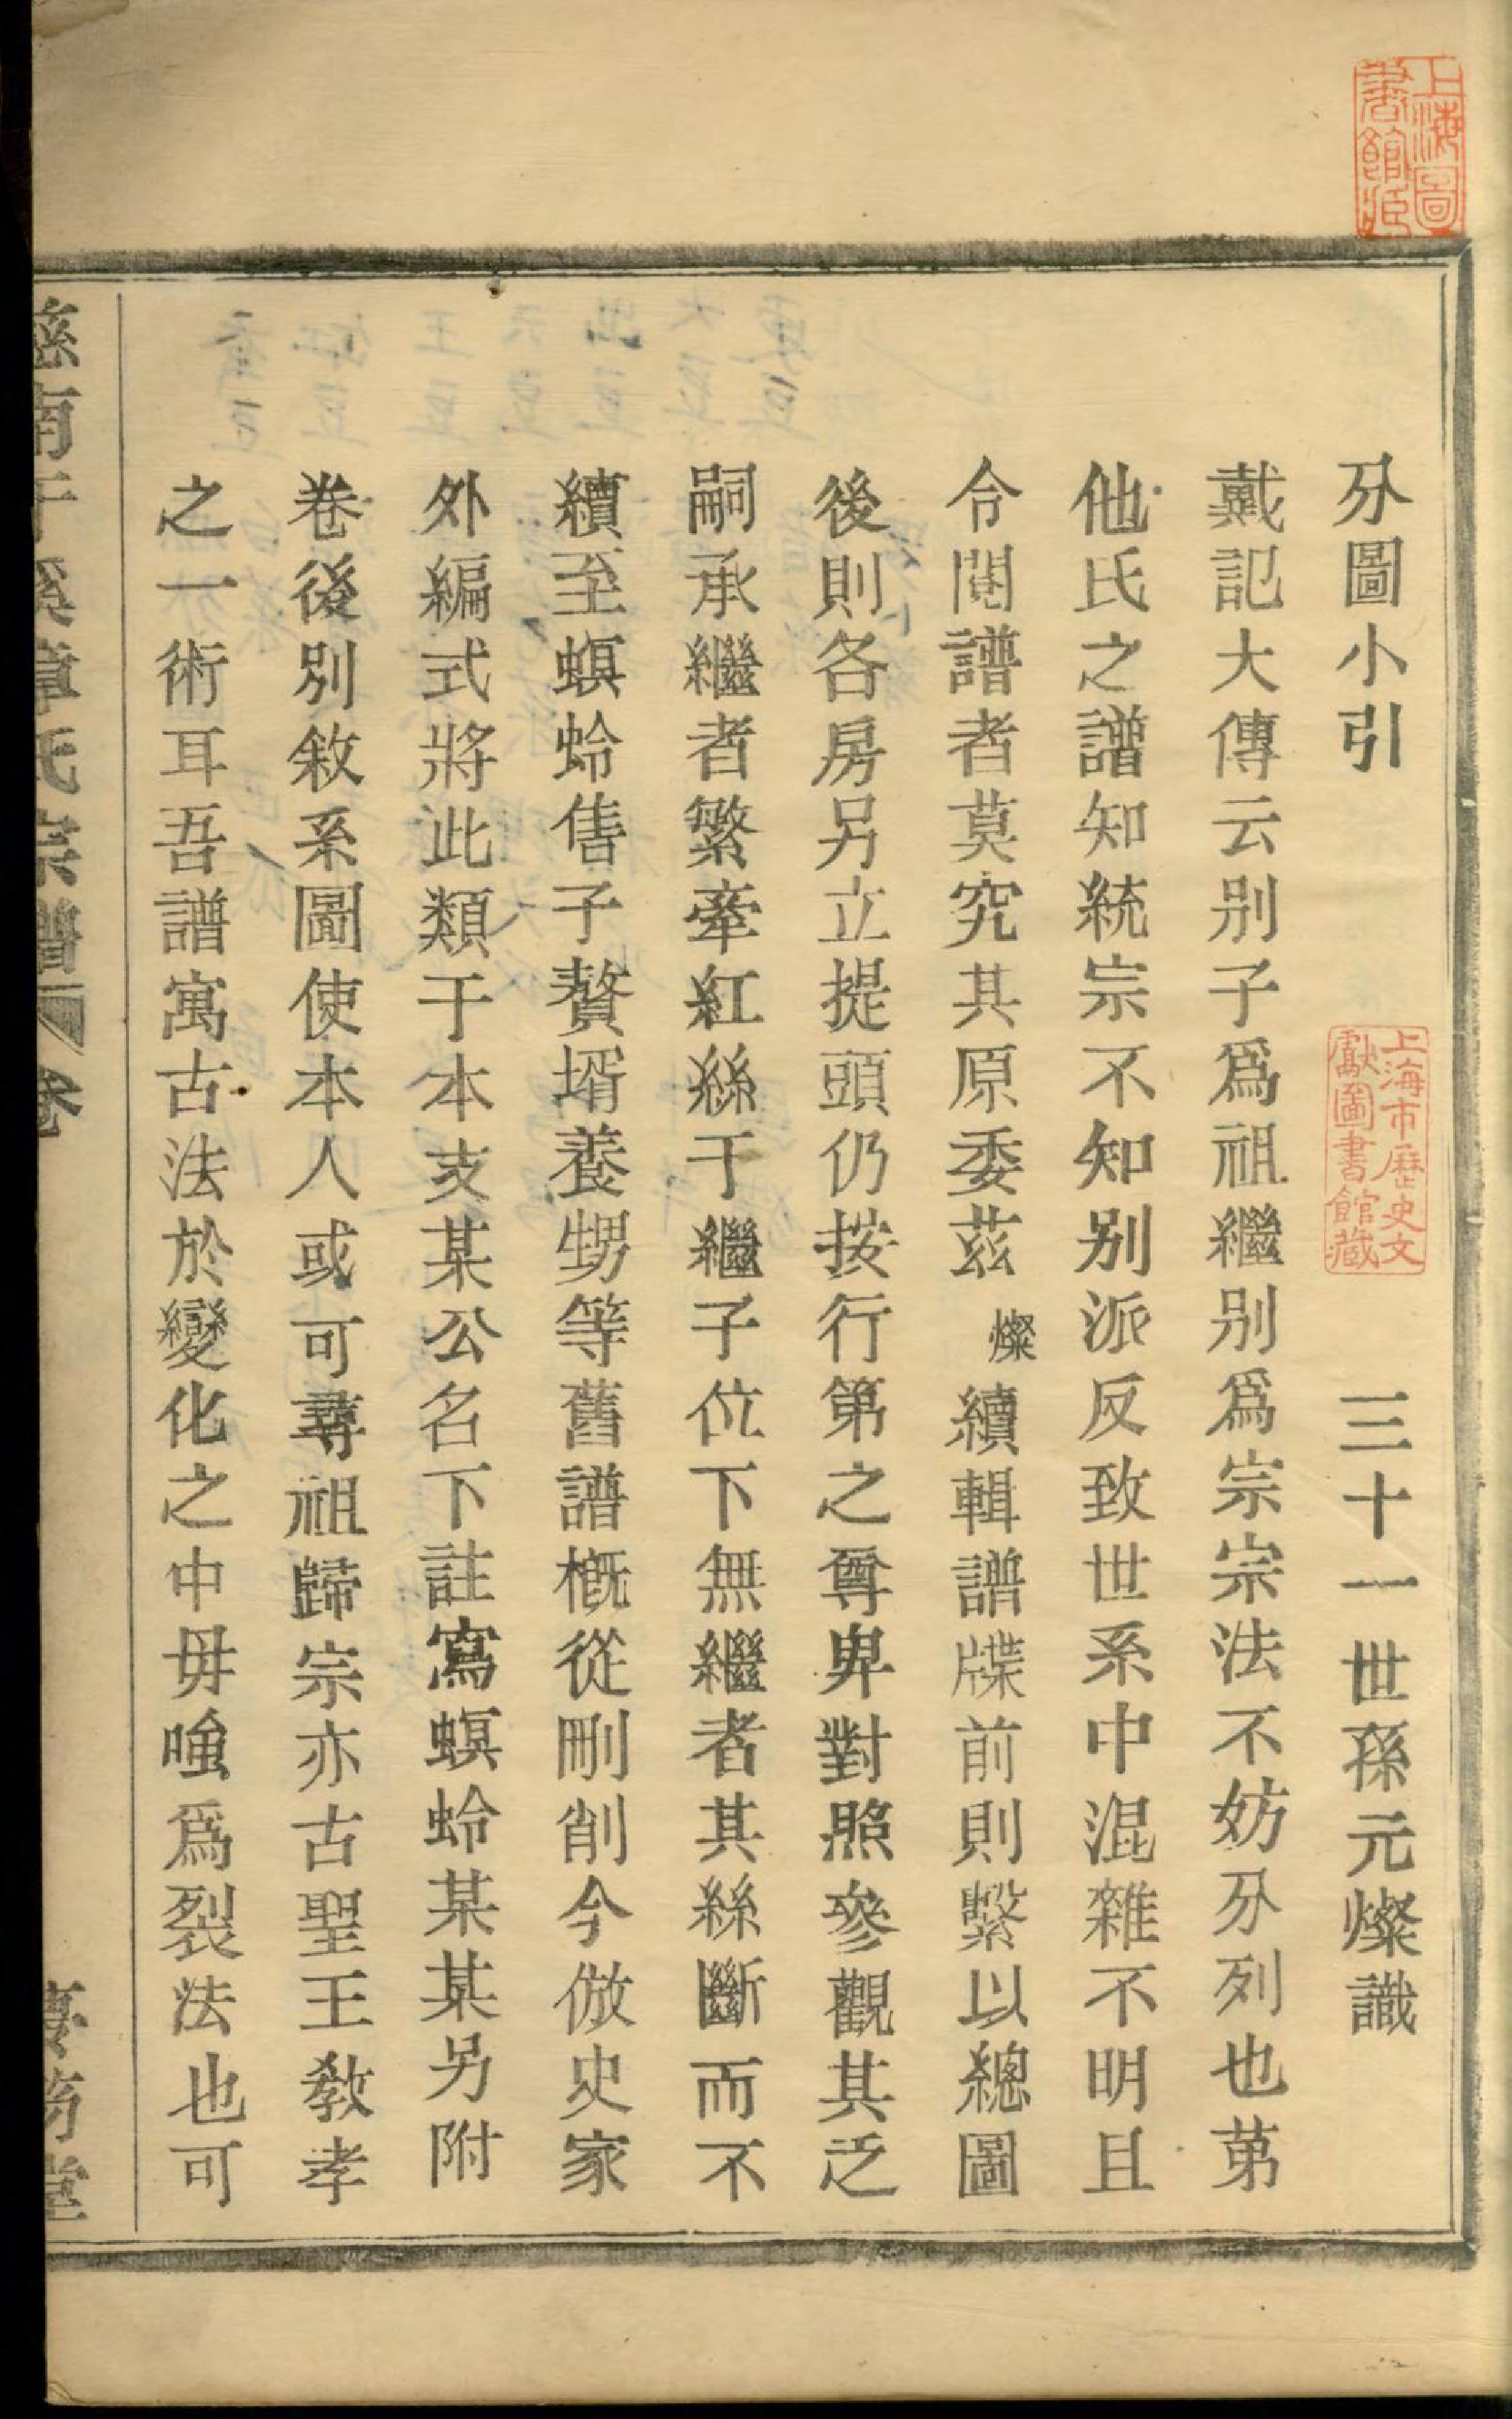 上海圖書館藏
上海市歷史文獻圖書館藏
分圖小引 三十一世孫元燦識
戴記大傳云别子爲祖繼别爲宗宗法不妨分列也苐
他氏之譜知統宗不知别派反致世系中混雜不明且
令閱譜者莫究其原委茲燦續輯譜牒前則繫以總圖
後則各房另立提頭仍按行第之尊卑對照參觀其乏
嗣承繼者繁牽紅絲于繼子位下無繼者其絲斷而不
續至螟蛉售子贅壻養甥等舊譜槪從刪削今倣史家
外編式將此類于本支某公名下註寫螟蛉某某另附
卷後別敘系圖使本人或可尋祖歸宗亦古聖王教孝
之一術耳吾譜寓古法於變化之中毋嗤爲裂法也可
慈南干溪章氏宗譜 卷